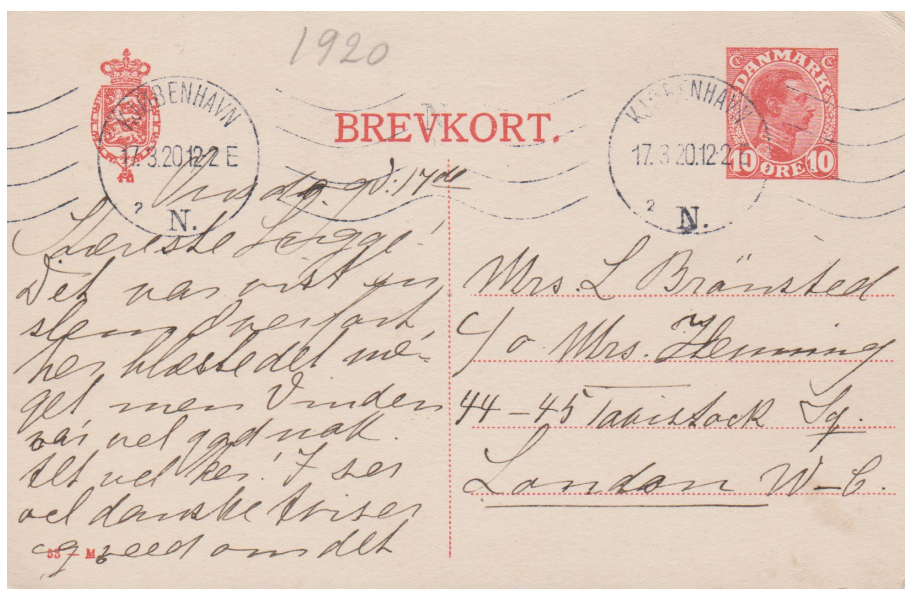 1920
DANMARK
10 ØRE 10
BREVKORT.
KJØBENHAVN
17.3.20.12-2 E
2
N.
KJØBENHAVN
17.3.20.12-2
2
N.
Onsdag d: 17de
Kæreste Sigge!
Det var vist en
slem Overfart
her blæste det me-
get men Vinden
var vel god nok.
Alt vel her! I ser
vel danske Aviser
og veed om det
53 - M
Mrs. L Brönsted
c/o Mrs. Henning
44-45 Tavistock Sq.
London W-C.